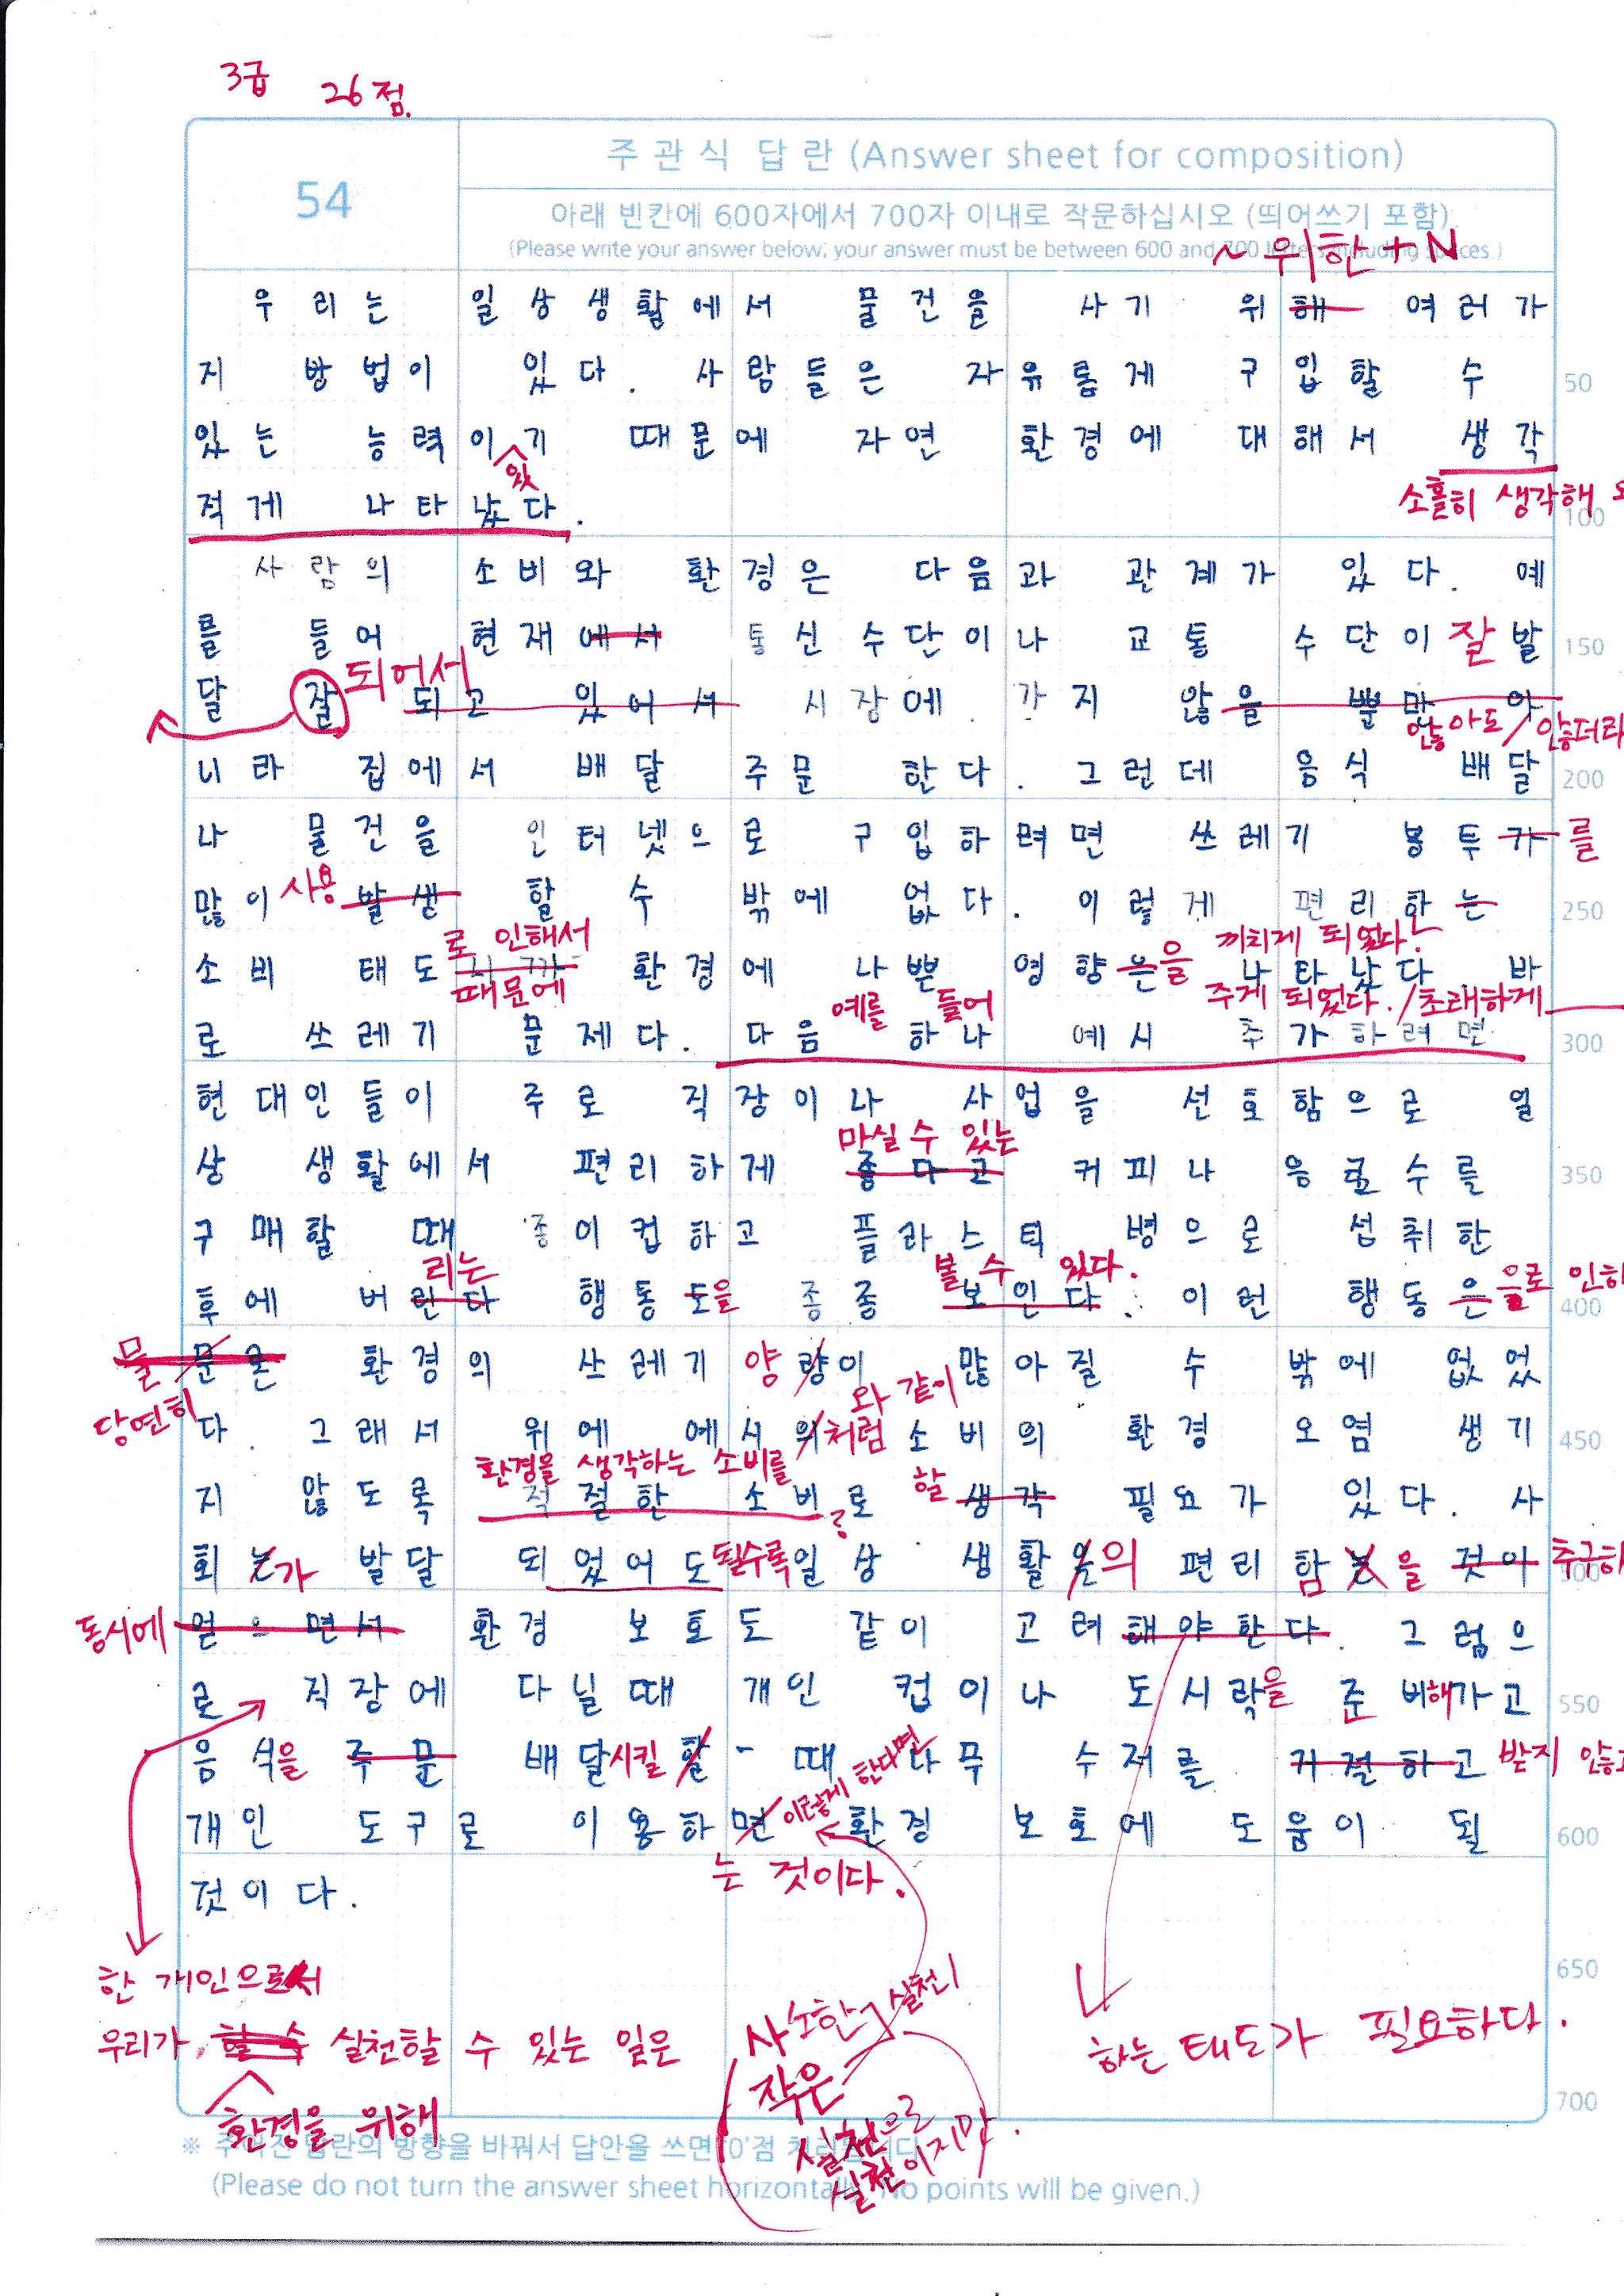 3급 26점.
54
주관식 답란 (Answer sheet for composition)
아래 빈칸에 600자에서 700자 이내로 작문하십시오 (띄어쓰기 포함).
(Please write your answer below; your answer must be between 600 and 700 letters including spaces.)
~위한+N
우리는 일상생활에서 물건을 사기 위해 여러가
지 방법이 있다. 사람들은 자유롭게 구입할 수
50
있는 능력이기 때문에 자연 환경에 대해서 생각
있
소홀히 생각해
적게 나타났다.
100
사람의 소비와 환경은 다음과 관계가 있다. 예
를 들어 현재에서 통신수단이나 교통 수단이 잘 발
150
되어서
달 잘 되고 있어서 시장에 가지 않을 뿐만 아
않아도/않더라
니라 집에서 배달 주문 한다. 그런데 음식 배달
200
나 물건을 인터넷으로 구입하려면 쓰레기 봉투가 를
많이 사용 발생 할 수 밖에 없다. 이렇게 편리하는
250
로 인해서
끼치게 되었다.
소비 태도 환경에 나쁜 영향은 을 나타났다. 바
때문에
주게 되었다./초래하게
예를 들어
로 쓰레기 문제다. 다음 하나 예시 추가하려면
300
현대인들이 주로 직장이나 사업을 선호함으로 일
마실 수 있는
상 생활에서 편리하게 좋다고 커피나 음료수를
350
구매할 때 종이컵하고 플라스틱 병으로 섭취한
리는
볼 수 있다.
후에 버린다 행동도을 종종 보인다. 이런 행동은 으로 인하
400
물 문론 환경의 쓰레기 양 량이 많아질 수 밖에 없었
당연히
와 같이
다. 그래서 위에 에시의 처럼 소비의 환경 오염 생기
450
환경을 생각하는 소비를 할
지 않도록 적절한 소비로 생각 필요가 있다. 사
회는 가 발달 되었어도 될수록 일상 생활은 의 편리함는 을 것이 추구하
500
동시에 얻으면서 환경 보호도 같이 고려해야한다. 그럼으
로 직장에 다닐때 개인 컵이나 도시락을 준비해가고
550
음식을 주문 배달시킬 할 때 나무 수저를 거절하고 받지 않고
이렇게 한다면
개인 도구로 이용하면 환경 보호에 도움이 될
600
는 것이다.
것이다.
650
한 개인으로서
우리가 할 수 실천할 수 있는 일은
환경을 위해
사소한 실천이
작은
실천으로
실천이지만.
하는 태도가 필요하다.
700
※ 주어진 답란의 방향을 바꿔서 답안을 쓰면 '0'점 처리됩니다.
(Please do not turn the answer sheet horizontally. No points will be given.)